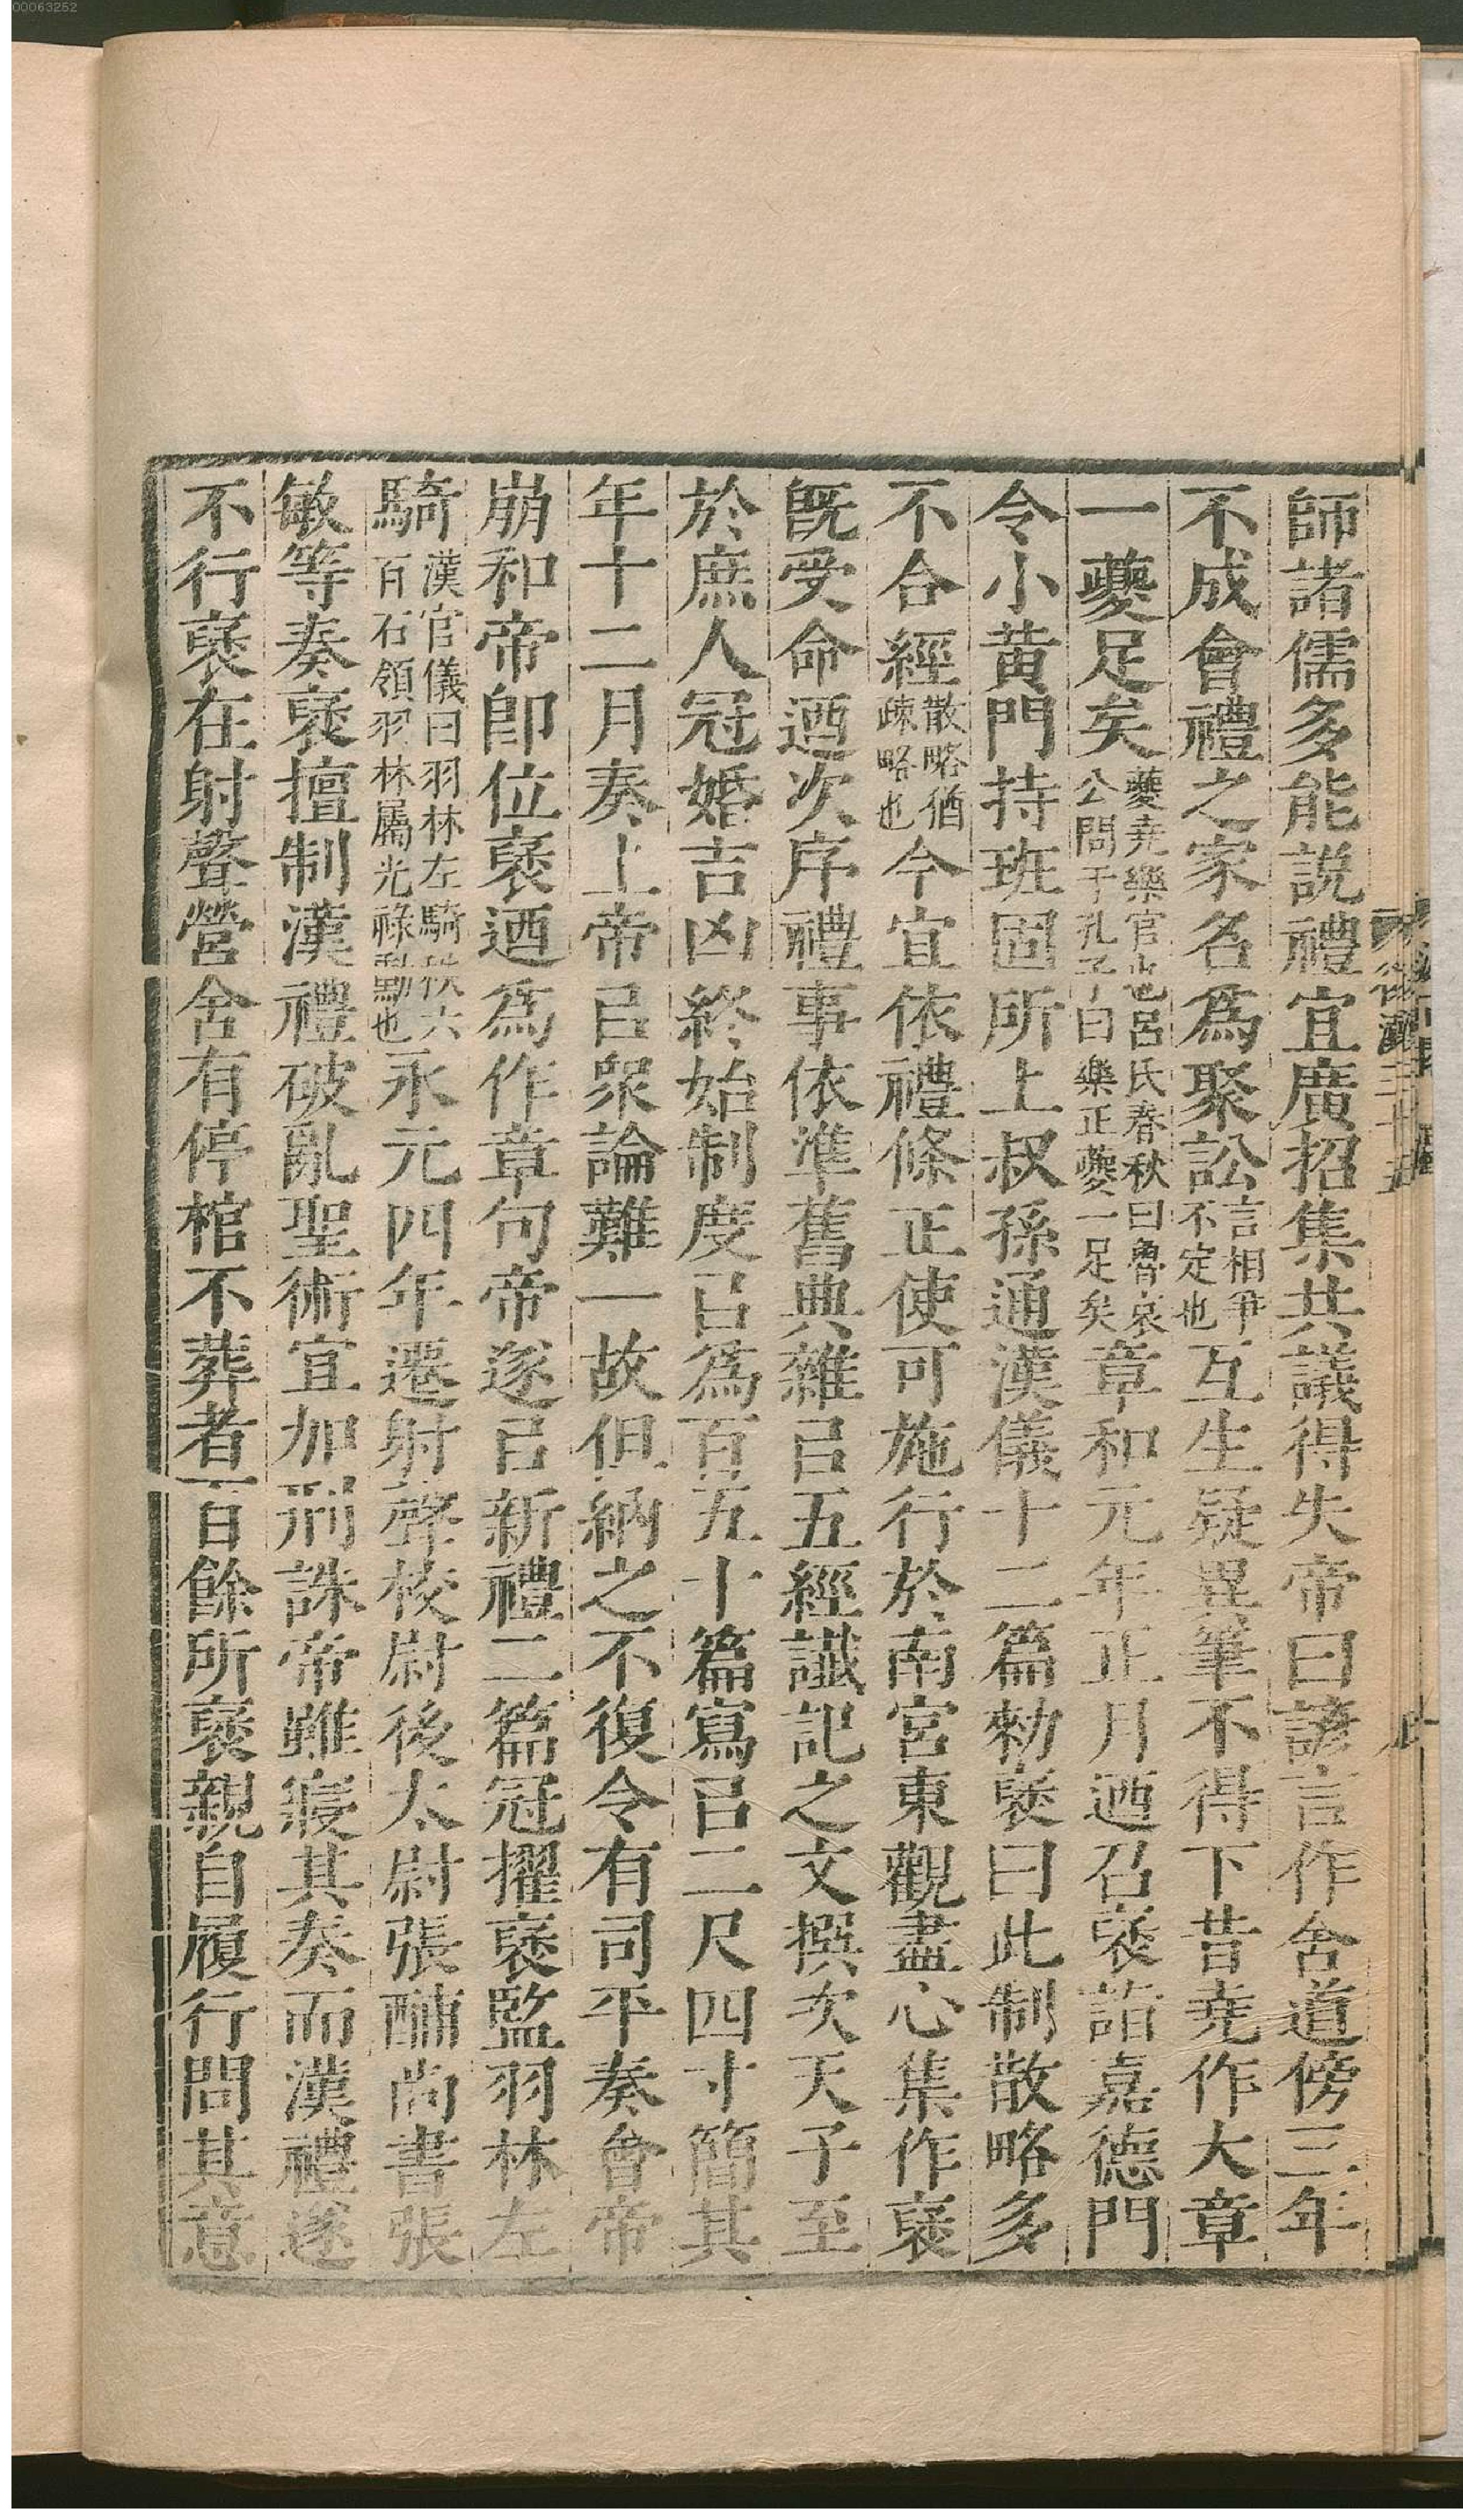 00063252
師諸儒多能説禮宜廣招集共議得失帝曰諺言作舍道傍三年
不成會禮之家名爲聚訟言相爭不定也互生疑異筆不得下昔堯作大章
一夔足矣夔堯樂官也呂氏春秋曰魯哀公問于孔子曰樂正夔一足矣章和元年正月迺召襃詣嘉德門
令小黃門持班固所上叔孫通漢儀十二篇勑襃曰此制散略多
不合經散略猶疎略也今宜依禮條正使可施行於南宮東觀盡心集作襃
旣受命迺次序禮事依準舊典雜㠯五經讖記之文撰次天子至
於庶人冠婚吉凶終始制度㠯爲百五十篇寫㠯二尺四寸簡其
年十二月奏上帝㠯衆論難一故但納之不復令有司平奏會帝
崩和帝卽位襃迺爲作章句帝遂㠯新禮二篇冠擢襃監羽林左
騎漢官儀曰羽林左騎秩六百石領羽林屬光祿勳也永元四年遷射聲校尉後太尉張酺尚書張
敏等奏襃擅制漢禮破亂聖術宜加刑誅帝雖寢其奏而漢禮遂
不行襃在射聲營舍有停棺不葬者百餘所襃親自履行問其意